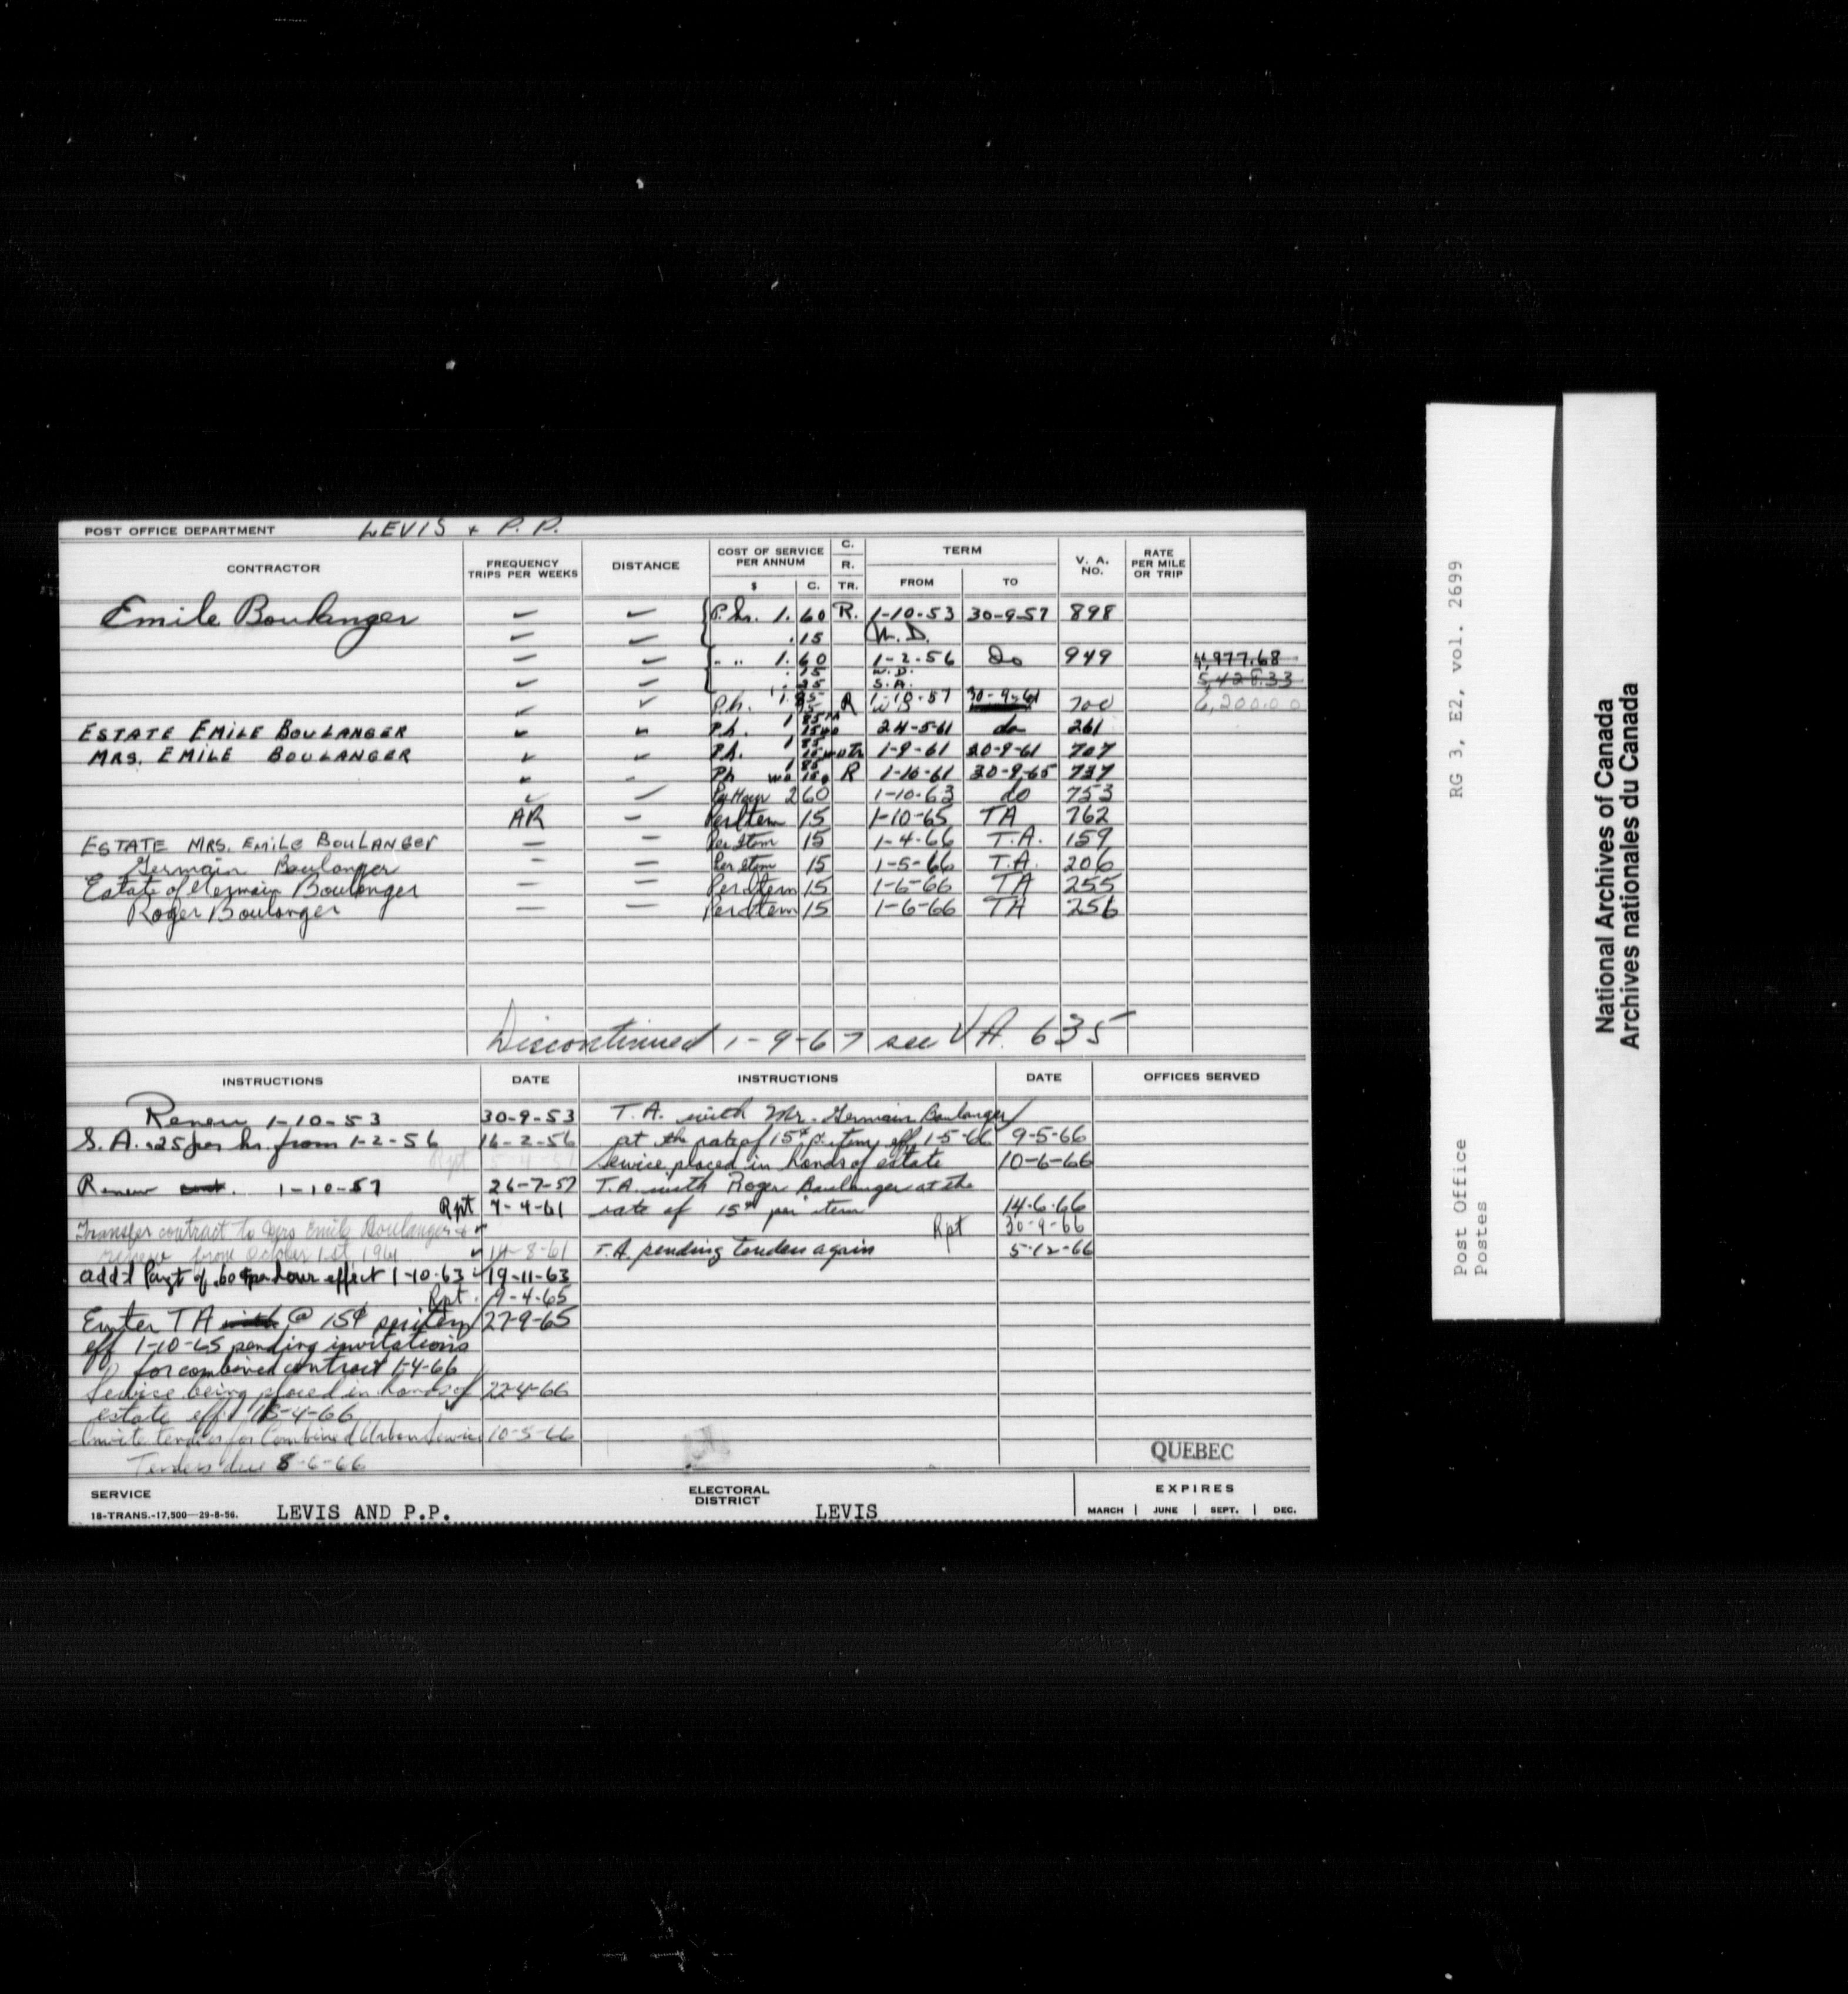 POST OFFICE DEPARTMENT LEVIS + P. P.
CONTRACTOR FREQUENCY TRIPS PER WEEKS DISTANCE COST OF SERVICE PER ANNUM $ C. C. R. TR. TERM FROM TO V. A. NO. RATE PER MILE OR TRIP
Emile Boulanger P. hr. 1.60 R. 1-10-53 30-9-57 898
.15 W. D.
" " 1.60 1-2-56 Do 949 4,977.68
.15 W. D. 5,428.33
.25 S. A.
P.h. 1.85 R 1-10-57 30-9-61 700 6,200.00
15 W D
ESTATE EMILE BOULANGER P.h. 1 85 24-5-61 do 261
MRS. EMILE BOULANGER P.h. 1 85 Tr 1-9-61 30-9-61 707
Ph 1 85 R 1-10-61 30-9-65 737
Per Hour 2 60 1-10-63 do 753
AR Per Item 15 1-10-65 TA 762
ESTATE MRS. EMILE BOULANGER Per Item 15 1-4-66 T.A. 159
Germain Boulanger Per Item 15 1-5-66 T.A. 206
Estate of Germain Boulanger Per Item 15 1-6-66 TA 255
Roger Boulanger Per Item 15 1-6-66 TA 256
Discontinued 1-9-67 see VA. 635
INSTRUCTIONS DATE INSTRUCTIONS DATE OFFICES SERVED
Renew 1-10-53 30-9-53
S. A. .25 per hr. from 1-2-56 16-2-56
Rpt 5-4-57
Renew 1-10-57 26-7-57
Rpt 7-4-61
Transfer contract to Mrs Emile Boulanger &
renew from October 1st, 1961 14-8-61
add'l Paymt of .60¢ per hour effect 1-10-63 19-11-63
Rpt. 9-4-65
Enter TA with @ 15¢ per item 27-9-65
eff 1-10-65 pending invitations
for combined contract 1-4-66
Service being placed in hands of 22-4-66
estate eff. 15-4-66
Invite tenders for Combined Urban Service 10-5-66
Tenders due 8-6-66
T. A. with Mr. Germain Boulanger
at the rate of 15¢ p. item eff 1-5-66 9-5-66
Service placed in hands of estate 10-6-66
T.A. with Roger Boulanger at the
rate of 15¢ per item 14-6-66
Rpt 30-9-66
T.A. pending tenders again 5-12-66
QUEBEC
SERVICE LEVIS AND P.P. ELECTORAL DISTRICT LEVIS EXPIRES
18-TRANS.-17,500—29-8-56. MARCH JUNE SEPT. DEC.
Post Office RG 3, E2, vol. 2699
Postes
National Archives of Canada
Archives nationales du Canada